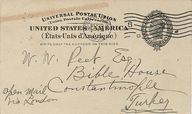 UNIVERSAL POSTAL UNION
UNITED STATES OF AMERICA
(États-Unis d'Amérique)
WRITE ONLY THE ADDRESS ON THIS SIDE
W. W. Peet Esq
Bible House
Constantinople
Turkey
Open Mail
via London